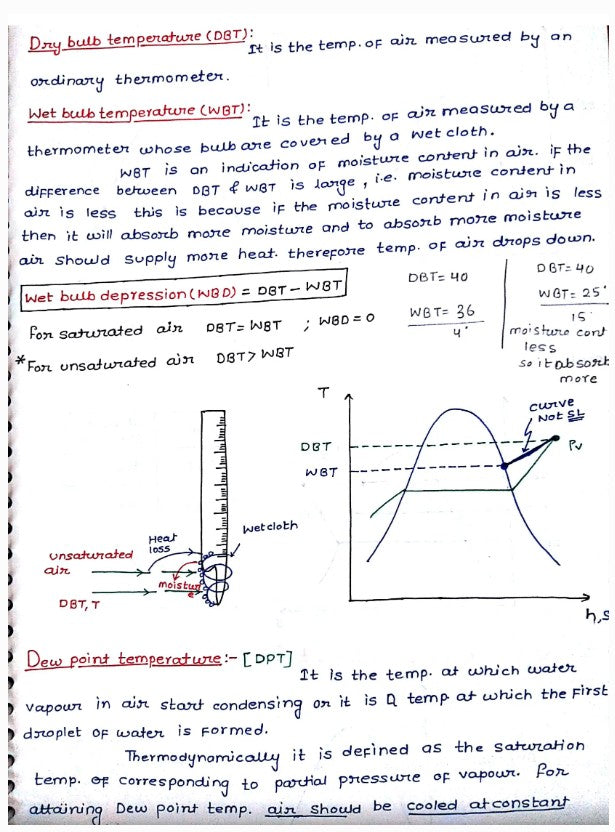 Dry bulb temperature (DBT):
It is the temp. of air measured by an
ordinary thermometer.
Wet bulb temperature (WBT):
It is the temp. of air measured by a
thermometer whose bulb are covered by a wet cloth.
WBT is an indication of moisture content in air. if the
difference between DBT & WBT is large, i.e. moisture content in
air is less this is because if the moisture content in air is less
then it will absorb more moisture and to absorb more moisture
air should supply more heat. therefore temp. of air drops down.
Wet bulb depression (WBD) = DBT - WBT
For saturated air DBT = WBT ; WBD = 0
*For unsaturated air DBT > WBT
DBT = 40
WBT = 36
4°
DBT = 40
WBT = 25°
15°
moisture cont
less
so it absorb
more
T
DBT
WBT
curve
Not SL
Pv
h,s
Wet cloth
Heat
loss
unsaturated
air
moistur
e
DBT, T
Dew point temperature:- [DPT]
It is the temp. at which water
vapour in air start condensing or it is a temp at which the First
droplet of water is formed.
Thermodynamically it is defined as the saturation
temp. of corresponding to partial pressure of vapour. For
attaining Dew point temp. air should be cooled at constant